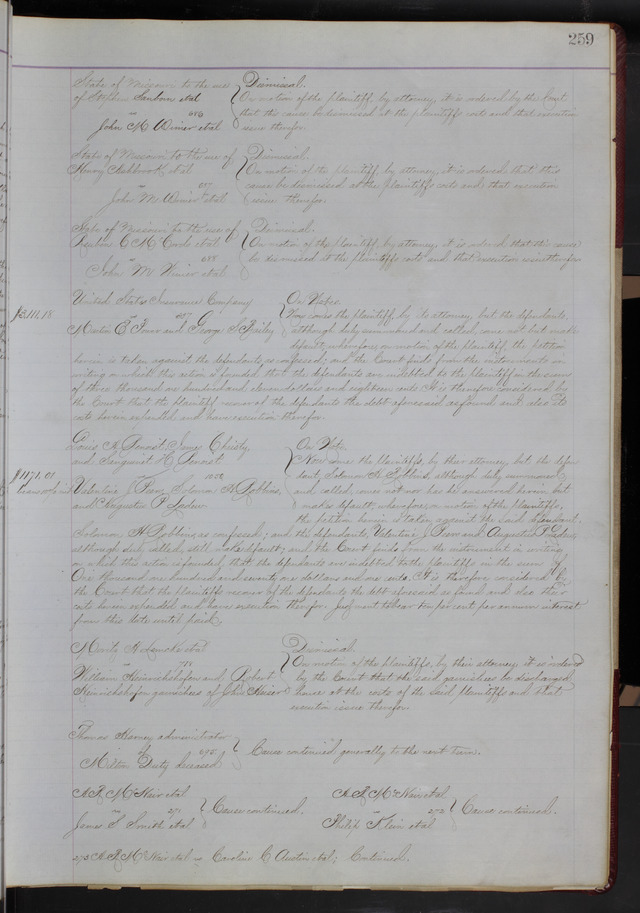 259
State of Missouri to the use
of Stephen Sanborn etal
vs 686
John M Wimer etal
Dismissal.
On motion of the plaintiff, by attorney, it is ordered by the Court
that this cause be dismissed at the plaintiffs costs and that execution
issue therefor.
State of Missouri to the use of
Henry etal
vs 687
John M Wimer etal
Dismissal.
On motion of the plaintiff by attorney, it is ordered that this
cause be dismissed at the plaintiffs costs and that execution
issue therefor.
State of Missouri to the use of
C McCord etal
vs 688
John M Wimer etal
Dismissal.
On motion of the plaintiff, by attorney, it is ordered that this cause
be dismissed at the plaintiffs costs and that execution issue therefor
$3111.18
United States Insurance Company
vs
Martin E and George S
On Notes.
Now comes the plaintiff, by its attorney, but the defendants,
although duly summoned and called, come not but make
default, wherefore, on motion of the plaintiff, the petition
herein is taken against the defendants as confessed; and the Court finds from the instruments in
writing on which this action is founded, that the defendants are indebted to the plaintiff in the sum
of three thousand one hundred and eleven dollars and eighteen cents. It is therefore considered by
the Court that the plaintiff recover of the defendants the debt aforesaid as found and also its
costs herein expended and have execution therefor.
$1171.01
Louis A Benoist, James Christy,
and Sanguinet H Benoist
vs
Valentine J Solomon H Robbins,
and Augustus P Ladew
On Note.
Now come the plaintiffs, by their attorney, but the defen
dant, Solomon H Robbins, although duly summoned
and called, comes not nor has he answered herein but
makes default; wherefore, on motion of the plaintiffs,
the petition herein is taken against the said defendant,
Solomon H Robbins, as confessed; and the defendants, Valentine J and Augustus P Ladew,
although duly called, still make default; and the Court finds from the instrument in writing
on which this action is founded, that the defendants are indebted to the plaintiffs in the sum of
One thousand one hundred and seventy one dollars and one cents. It is, therefore considered by
the Court that the plaintiffs recover of the defendants the debt aforesaid as found and also their
costs herein expended and have execution therefor. Judgment to bear ten per cent per annum interest
from this date until paid.
etal
vs
William Heinrichshofen and Robert
Heinrichshofen garnishees of John
Dismissal.
On motion of the plaintiffs, by their attorney it is ordered
by the Court that the said garnishees be discharged
hence at the costs of the said plaintiffs and that
execution issue therefor.
Thomas administrator
of 695
Milton Duty deceased
Cause continued generally to the next term.
A R McNair etal
vs 271
James S Smith etal
Cause continued.
A R McNair etal
vs 272
Philip Klein etal
Cause continued.
273 A R McNair etal vs Caroline C Austin etal; Continued.